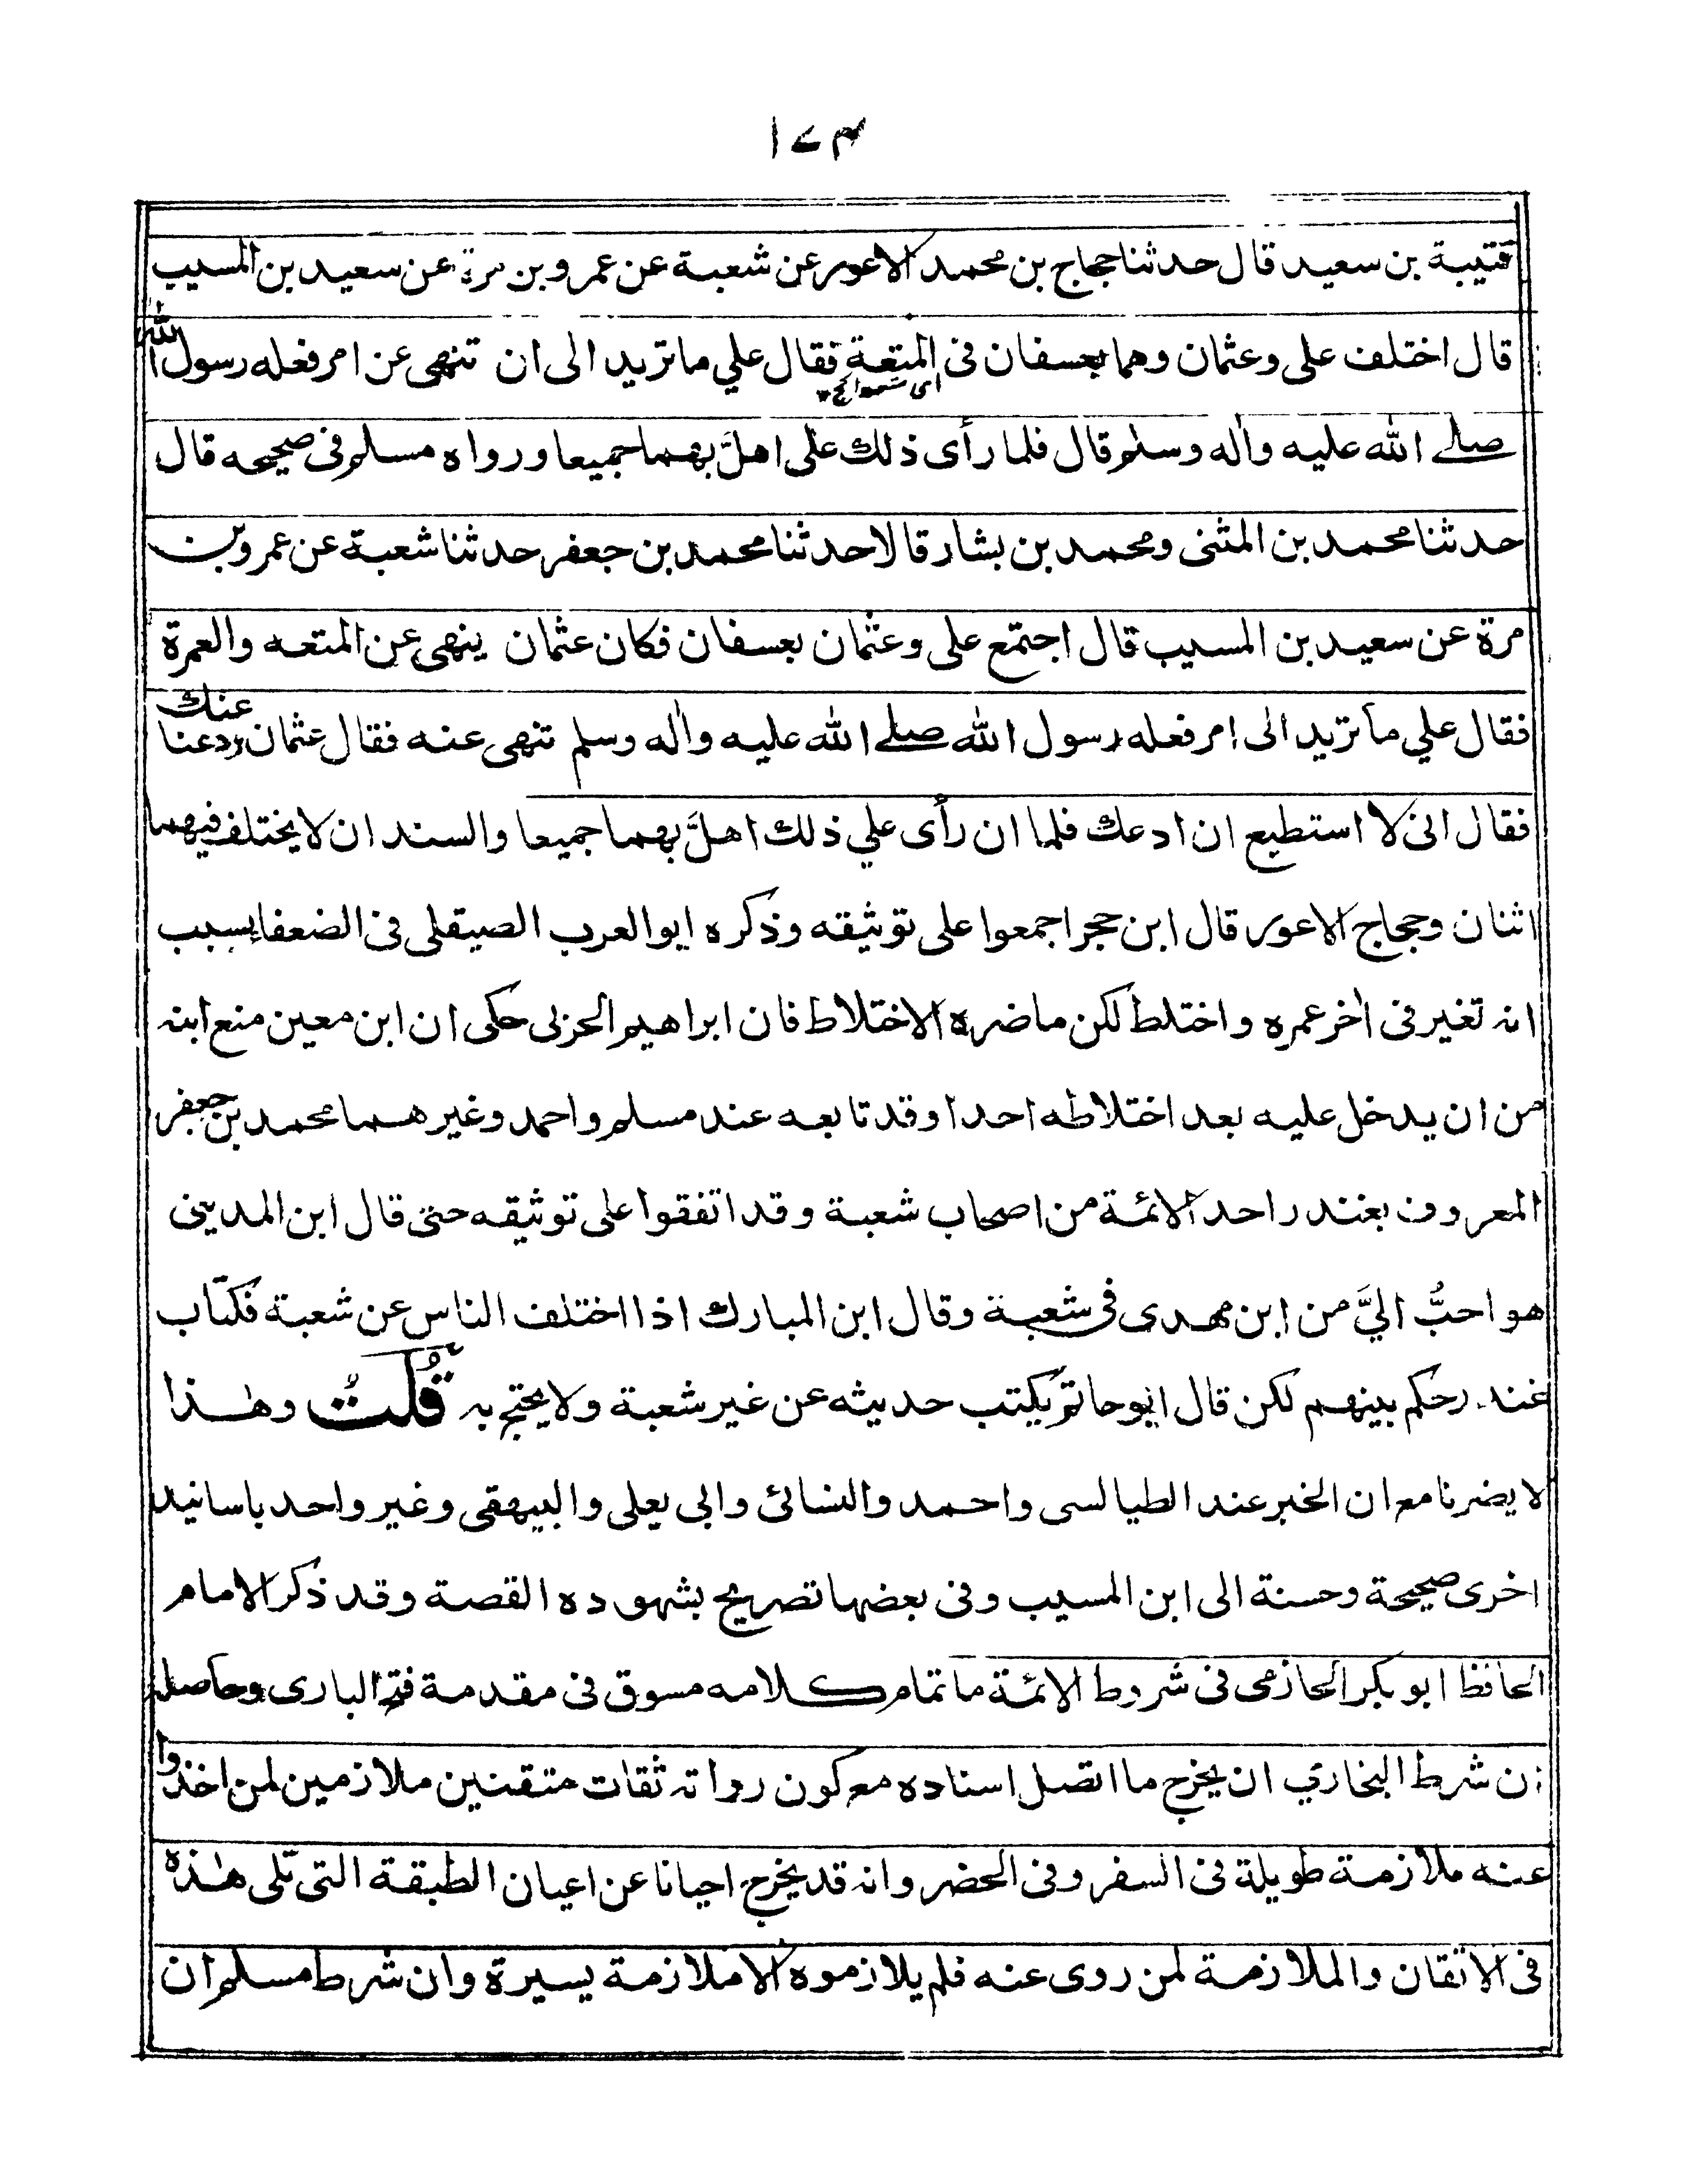 ١٧٣
قتيبة بن سعيد قال حدثنا حجاج بن محمد الاعور عن شعبة عن عمرو بن مرة عن سعيد بن المسيب
قال اختلف على وعثمان وهما بعسفان فى المتعة فقال علي ما تريد الى ان تنهى عن امر فعله رسول الله
اى متعة الحج
صلے الله عليه واٰله وسلم قال فلما رأى ذلك على اهلَّ بهما جميعا ورواه مسلم فى صحيحه قال
حدثنا محمد بن المثنى ومحمد بن بشار قالا حدثنا محمد بن جعفر حدثنا شعبة عن عمرو بن
مرة عن سعيد بن المسيب قال اجتمع على وعثمان بعسفان فكان عثمان ينهى عن المتعه والعمرة
فقال علي ما تريد الى امر فعله رسول الله صلے الله عليه واٰله وسلم تنهى عنه فقال عثمان دعنا عنك
فقال انى لا استطيع ان ادعك فلما ان رأى علي ذلك اهلَّ بهما جميعا والسند ان لا يختلف فيهما
اثنان وحجاج الاعور قال ابن حجر اجمعوا على توثيقه وذكره ابو العرب الصيقلى فى الضعفا بسبب
انه تغير فى اٰخر عمره واختلط لكن ما ضره الاختلاط فان ابراهيم الحربى حكى ان ابن معين منع ابنه
من ان يدخل عليه بعد اختلاطه احدا وقد تابعه عند مسلم واحمد وغيرهما محمد بن جعفر
المعروف بغندر احد الائمة من اصحاب شعبة وقد اتفقوا على توثيقه حتى قال ابن المدينى
هو احبُّ اليَّ من ابن مهدى فى شعبة وقال ابن المبارك اذا اختلف الناس عن شعبة فكتاب
غندر حكم بينهم لكن قال ابو حاتم يكتب حديثه عن غير شعبة ولا يحتج به قُلتُ وهٰذا
لا يضرنا مع ان الخبر عند الطيالسى واحمد والنسائى وابى يعلى والبيهقى وغير واحد باسانيد
اخرى صحيحة وحسنة الى ابن المسيب وفى بعضها تصريح بشهوده القصة وقد ذكر الامام
الحافظ ابو بكر الحازمى فى شروط الائمة ما تمام كلامه مسوق فى مقدمة فتح البارى وحاصله
ان شرط البخاري ان يخرج ما اتصل اسناده مع كون رواته ثقات متقنين ملازمين لمن اخذوا
عنه ملازمة طويلة فى السفر وفى الحضر وانه قد يخرج احيانا عن اعيان الطبقة التى تلى هٰذه
فى الاتقان والملازمة لمن روى عنه فلم يلازموه الا ملازمة يسيرة وان شرط مسلم ان